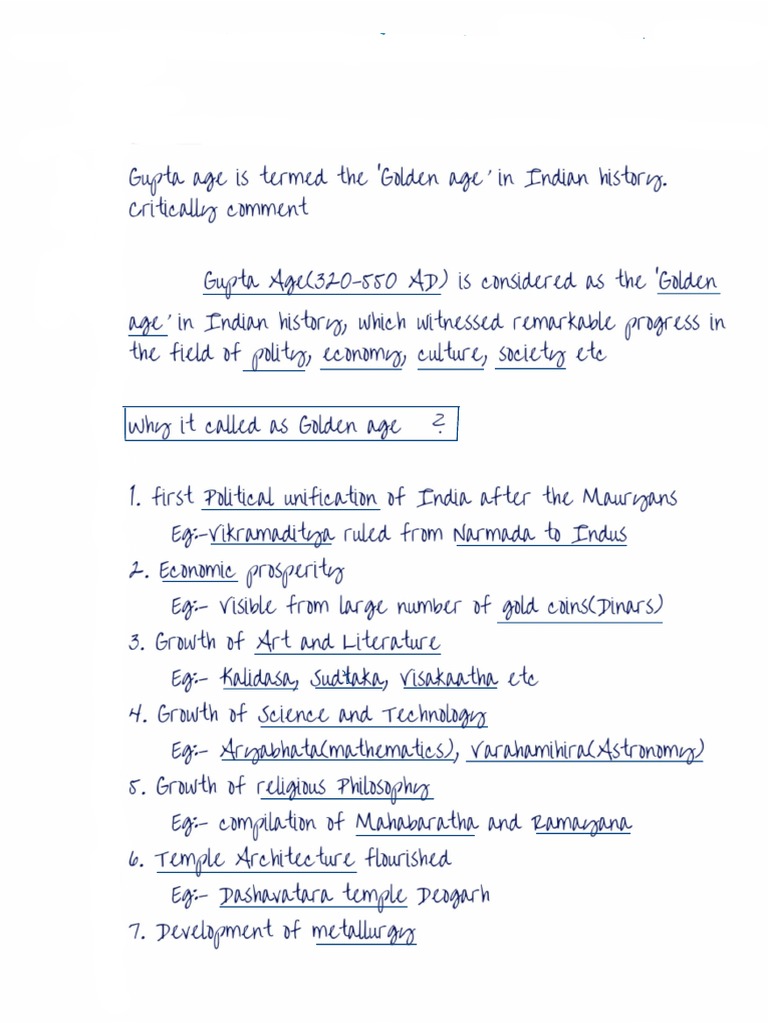 Gupta age is termed the 'Golden age' in Indian history.
Critically comment
Gupta Age(320-550 AD) is considered as the 'Golden
age' in Indian history, which witnessed remarkable progress in
the field of polity, economy, culture, society etc
Why it called as Golden age ?
1. first Political unification of India after the Mauryans
Eg:- Vikramaditya ruled from Narmada to Indus
2. Economic prosperity
Eg:- Visible from large number of gold coins(Dinars)
3. Growth of Art and Literature
Eg:- Kalidasa, Sudtaka, Visakaatha etc
4. Growth of Science and Technology
Eg:- Aryabhata(mathematics), Varahamihira(Astronomy)
5. Growth of religious Philosophy
Eg:- compilation of Mahabaratha and Ramayana
6. Temple Architecture flourished
Eg:- Dashavatara temple Deogarh
7. Development of metallurgy